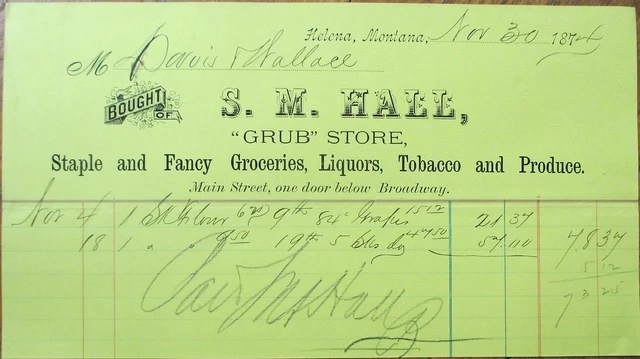 Helena, Montana, Nov 30 1874
M Davis & Wallace
BOUGHT OF
S. M. HALL,
"GRUB" STORE,
Staple and Fancy Groceries, Liquors, Tobacco and Produce.
Main Street, one door below Broadway.
Nov 4 1 Sk Flour 6 9th 84 Grapes 15 12 21 37
18 1 " " 9 50 19th 5 do 47 50 57.00 78 37
5 12
73 25
Paid S M Hall